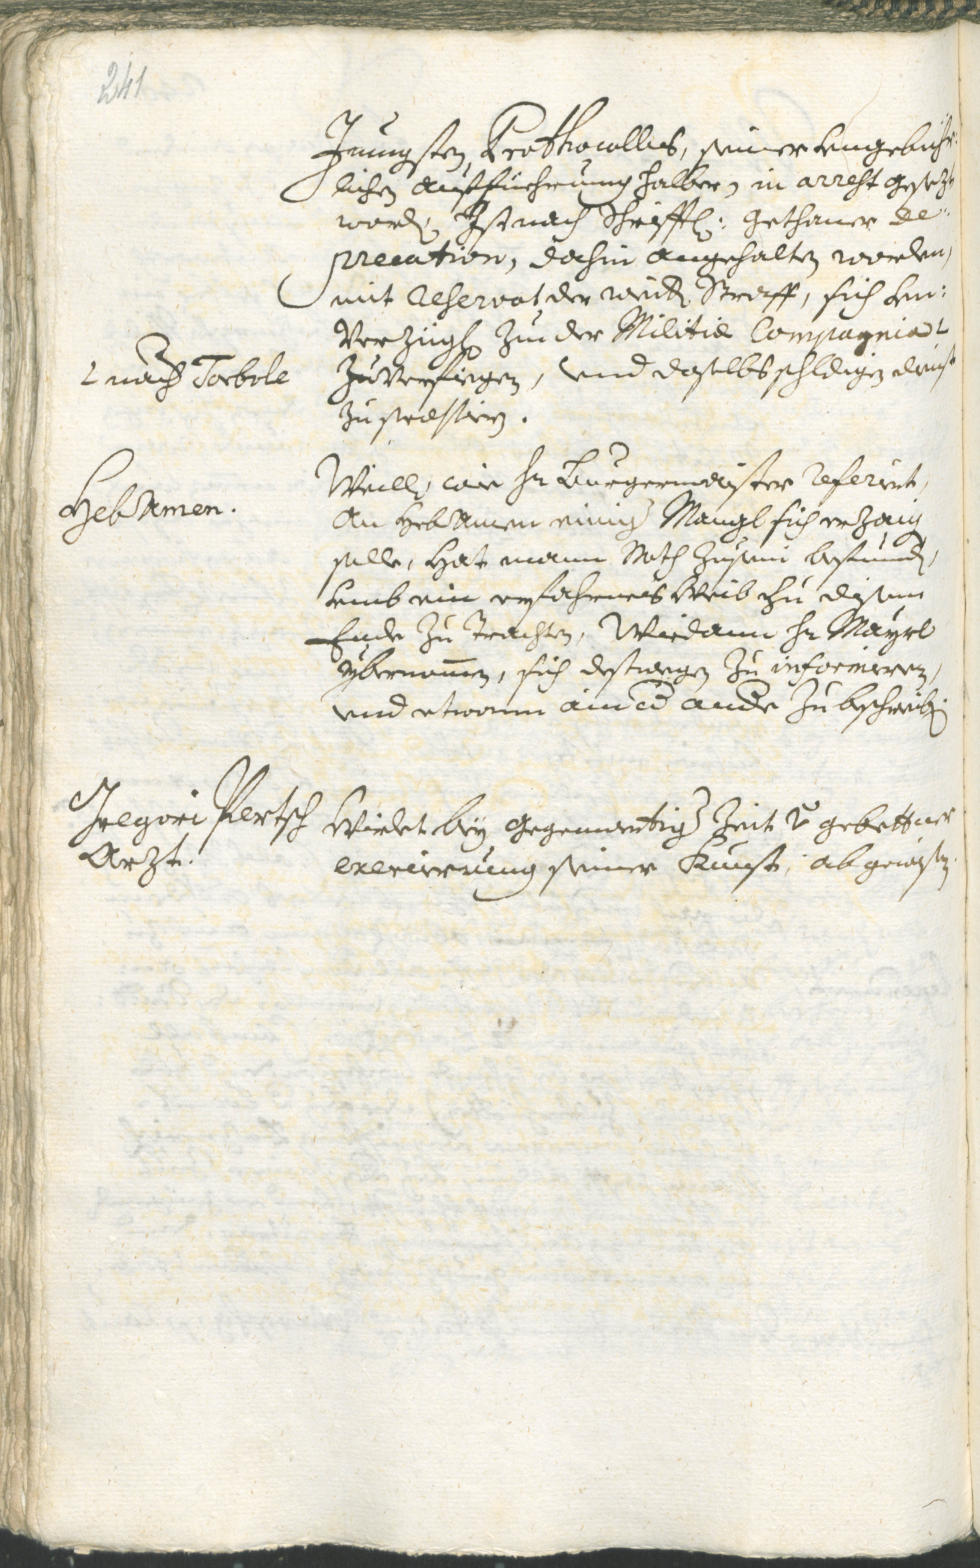 241
Jüngsten Prothocollus, seiner Ungebühr-
lichen aufführung halber, in arrest gesezt
word, Ist nach Schrifftl: gethaner de-
precation, dahin angehalten worden,
mit reservat der weitern Straff, sich Un-
Verzügl zu der Militia Compagnia
nach Torbole
zuverfiegen, und daselbs schuldigen dienst
zu praestiern.
Heb Amen.
Weilln, wie Hr Burgermaister referirt,
An Heb Amen einiger Mangl sich erzaig
solle, Hat mann Noth zusein befundn,
Umb ein erfahrnes Weib zu disem
Ende zu trachten, Wie dann Hr Mayrl
ybernomen, sich destwegen zu informieren,
und etwann ain oder andere zu beschreibn
Gregori Pertsch
Arzt.
Wirdet bey gegenwertiger Zeit der gebettner
exercierung seiner Kunst, abgewisen.